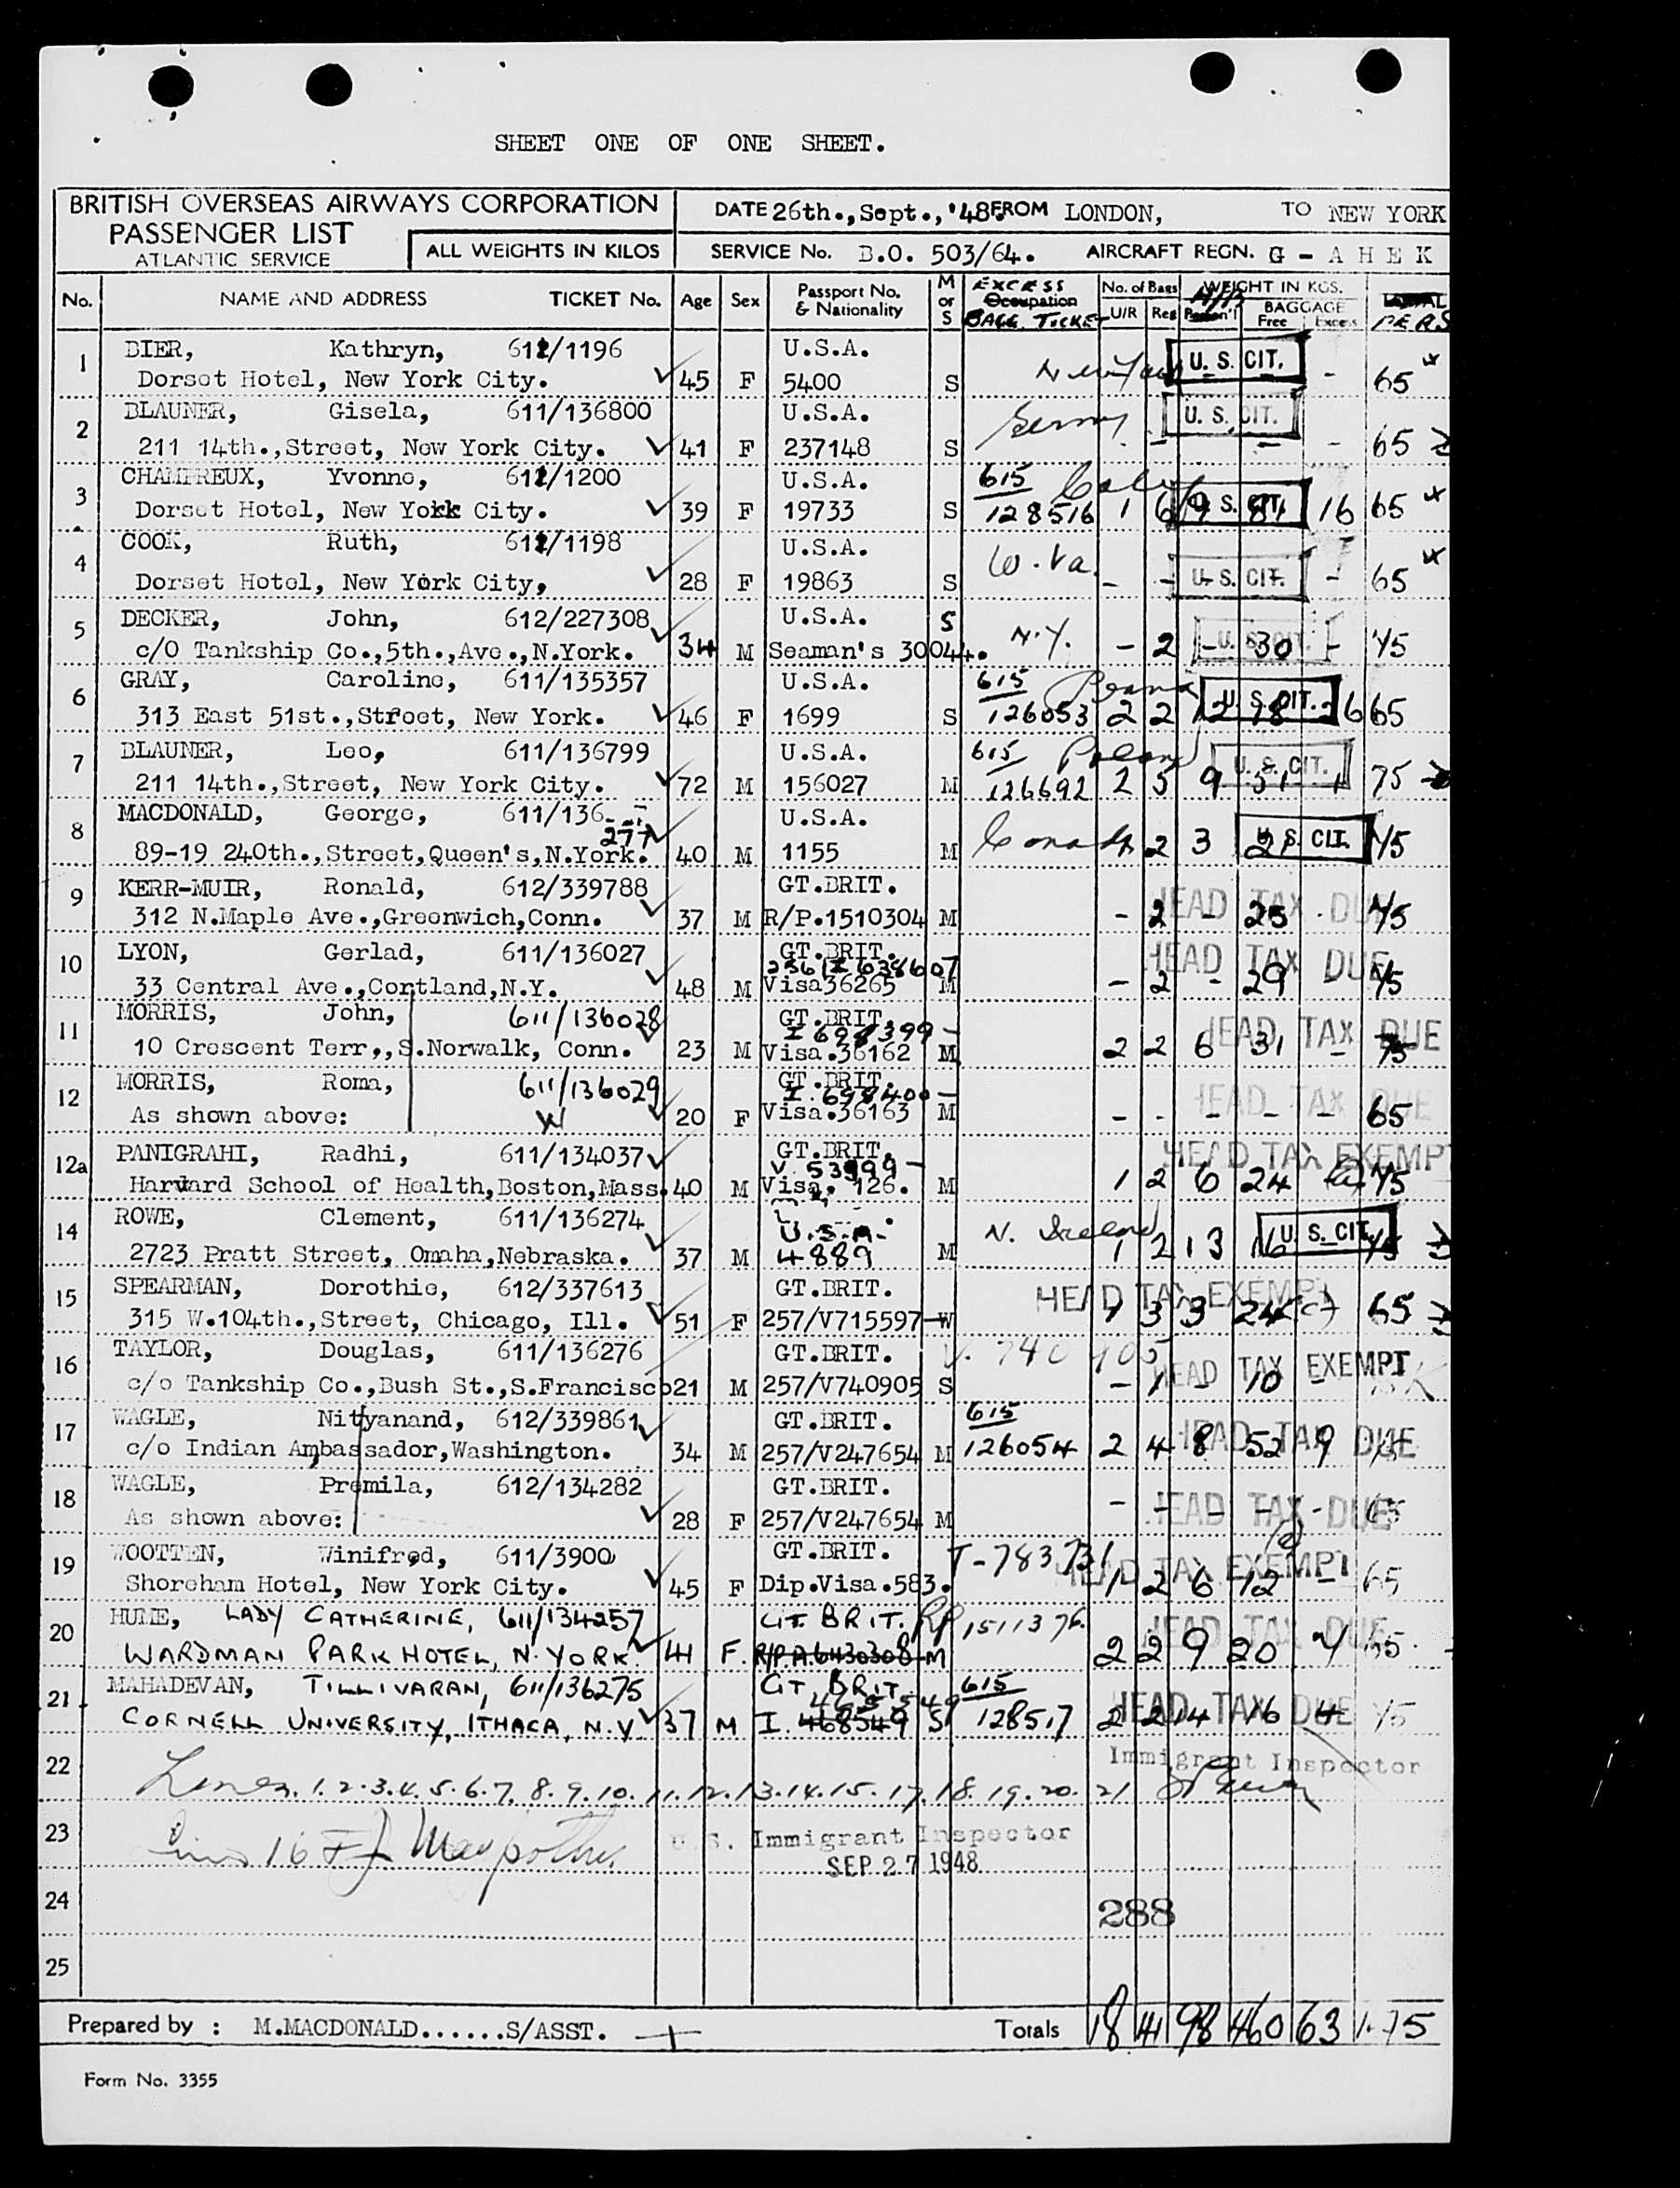 SHEET ONE OF ONE SHEET.
BRITISH OVERSEAS AIRWAYS CORPORATION
PASSENGER LIST
ATLANTIC SERVICE
ALL WEIGHTS IN KILOS
DATE 26th.,Sept.,'48. FROM LONDON, TO NEW YORK
SERVICE No. B.O. 503/64. AIRCRAFT REGN. G - A H E K
No. NAME AND ADDRESS TICKET No. Age Sex Passport No. & Nationality M or S EXCESS Occupation BAGG. TICKET No. of Bags U/R Reg WEIGHT IN KGS. BAGGAGE Free Excess PERS
1 BIER, Kathryn, 612/1196 U.S.A. U. S. CIT.
Dorset Hotel, New York City. 45 F 5400 S - 65
2 BLAUNER, Gisela, 611/136800 U.S.A. U. S. CIT.
211 14th.,Street, New York City. 41 F 237148 S - - - 65
3 CHAMPREUX, Yvonne, 612/1200 U.S.A. 615 Calif
Dorset Hotel, New Yokk City. 39 F 19733 S 128516 1 6 9 81 U. S. CIT. 16 65
4 COOK, Ruth, 612/1198 U.S.A. W. Va.
Dorset Hotel, New York City, 28 F 19863 S - - U. S. CIT. - 65
5 DECKER, John, 612/227308 U.S.A. S N.Y.
c/O Tankship Co.,5th.,Ave.,N.York. 34 M Seaman's 30044. - 2 - 30 U. S. CIT. - 75
6 GRAY, Caroline, 611/135357 U.S.A. 615
313 East 51st.,Street, New York. 46 F 1699 S 126053 2 2 12 18 U. S. CIT. 26 65
7 BLAUNER, Leo, 611/136799 U.S.A. 615 Poland
211 14th.,Street, New York City. 72 M 156027 M 126692 2 5 9 51 U. S. CIT. 1 75
8 MACDONALD, George, 611/136 277 U.S.A. Canada
89-19 240th.,Street,Queen's,N.York. 40 M 1155 M 2 3 U. S. CIT. 75
9 KERR-MUIR, Ronald, 612/339788 GT.BRIT. HEAD TAX DUE
312 N.Maple Ave.,Greenwich,Conn. 37 M R/P.1510304 M - 2 - 25 75
10 LYON, Gerlad, 611/136027 GT.BRIT. HEAD TAX DUE
33 Central Ave.,Cortland,N.Y. 48 M Visa36265 M - 2 - 29 - 75
11 MORRIS, John, 611/136028 GT.BRIT. I 698399 - HEAD TAX DUE
10 Crescent Terr,,S.Norwalk, Conn. 23 M Visa.36162 M 2 2 6 31 - 75
12 MORRIS, Roma, 611/136029 GT.BRIT. I. 698400 - HEAD TAX DUE
As shown above: 20 F Visa.36163 M - - - - - 65
12a PANIGRAHI, Radhi, 611/134037 GT.BRIT. V. 53999 - HEAD TAX EXEMPT
Harvard School of Health,Boston,Mass. 40 M Visa. 126. M 1 2 6 24 75
14 ROWE, Clement, 611/136274 U.S.A. N. Ireland U. S. CIT.
2723 Pratt Street, Omaha,Nebraska. 37 M 4889 M 1 2 13 16 75
15 SPEARMAN, Dorothie, 612/337613 GT.BRIT. HEAD TAX EXEMPT
315 W.104th.,Street, Chicago, Ill. 51 F 257/V715597 W 1 3 3 24 65
16 TAYLOR, Douglas, 611/136276 GT.BRIT. V. 740905 HEAD TAX EXEMPT
c/o Tankship Co.,Bush St.,S.Francisco 21 M 257/V740905 S - 1 - 10 -
17 WAGLE, Nityanand, 612/339861 GT.BRIT. 615 HEAD TAX DUE
c/o Indian Ambassador,Washington. 34 M 257/V247654 M 126054 2 4 8 52 9 75
18 WAGLE, Premila, 612/134282 GT.BRIT. HEAD TAX DUE
As shown above: 28 F 257/V247654 M - - - - - 65
19 WOOTTEN, Winifred, 611/3900 GT.BRIT. T-783731 HEAD TAX EXEMPT
Shoreham Hotel, New York City. 45 F Dip.Visa.583. 1 2 6 12 - 65
20 HUME, LADY CATHERINE, 611/134257 GT. BRIT. RP 1511376. HEAD TAX DUE
WARDMAN PARK HOTEL, N. YORK 41 F. R/P.A.6430308 M 2 2 9 20 65
21 MAHADEVAN, TILLIVARAN, 611/136275 GT. BRIT. 465549 615 HEAD TAX DUE
CORNELL UNIVERSITY, ITHACA, N.Y. 37 M I. 468549 S 128517 2 2 14 16 4 75
22 Immigrant Inspector
Lines. 1.2.3.4.5.6.7.8.9.10.11.12.13.14.15.17.18.19.20.21
23 Line 16 U. S. Immigrant Inspector
SEP 27 1948
24 288
25
Prepared by : M.MACDONALD......S/ASST. Totals 18 41 98 460 63 1.75
Form No. 3355